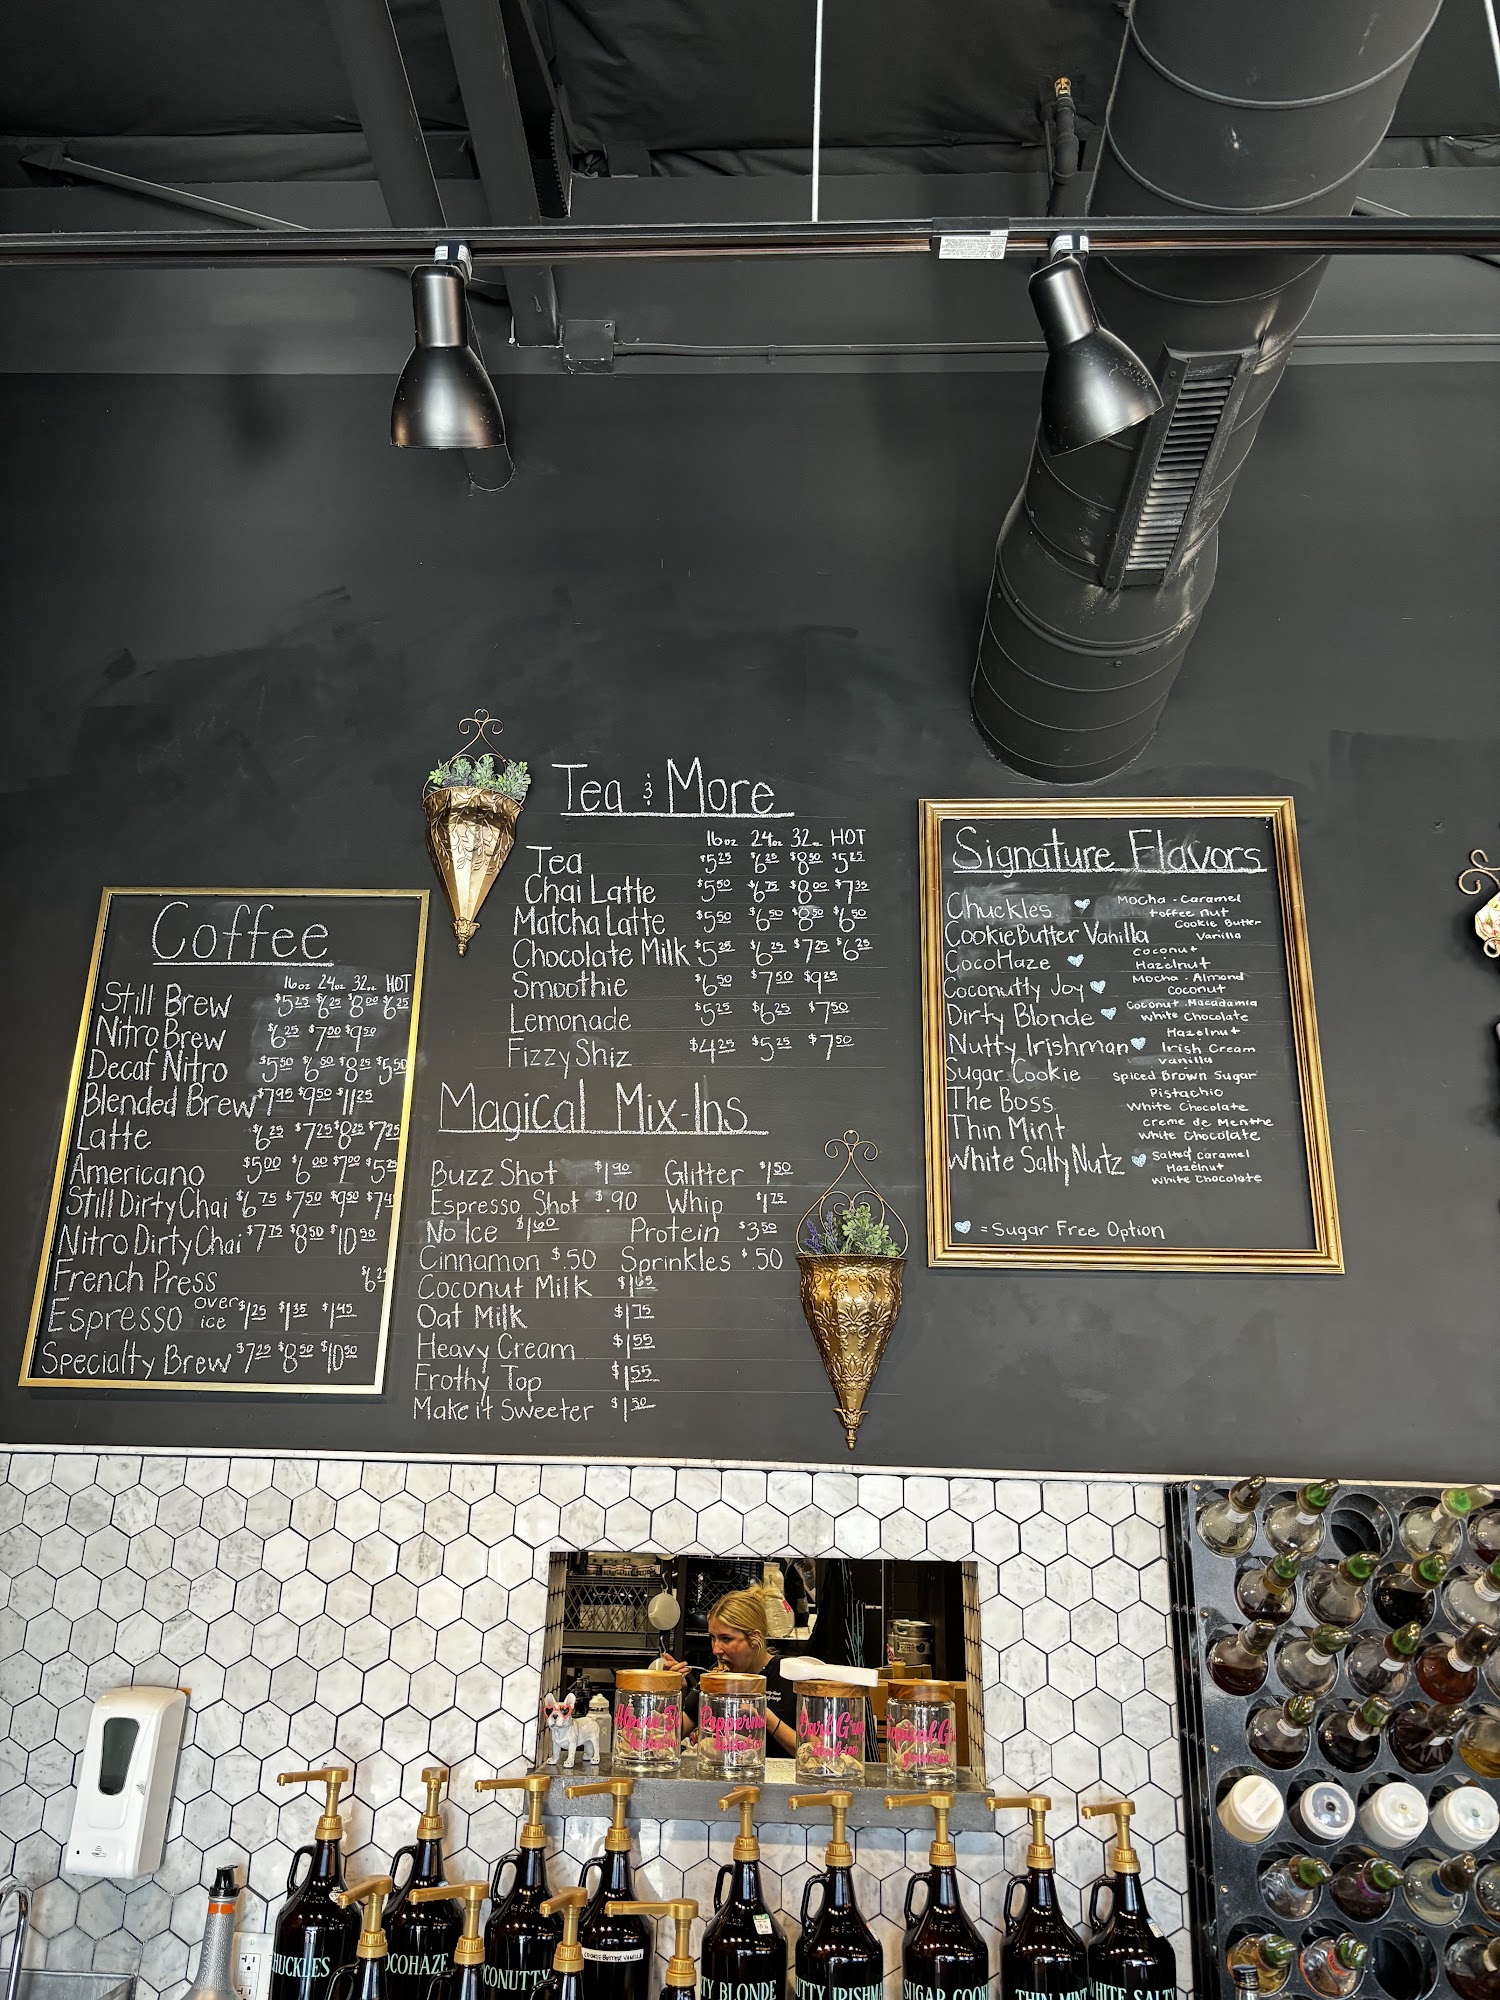 Coffee
16oz 24oz 32oz HOT
Still Brew $5.25 $6.25 $8.00 $6.25
Nitro Brew $6.25 $7.50 $9.50
Decaf Nitro $5.50 $6.50 $8.25 $5.50
Blended Brew $7.95 $9.50 $11.25
Latte $6.25 $7.25 $8.25 $7.25
Americano $5.00 $6.00 $7.00 $5.25
Still Dirty Chai $6.75 $7.50 $9.50
Nitro Dirty Chai $7.75 $8.50 $10.50
French Press
Espresso over ice $1.25 $1.35 $1.45
Specialty Brew $7.25 $8.50 $10.50
Tea & More
16oz 24oz 32oz HOT
Tea $5.25 $6.25 $8.50 $5.25
Chai Latte $5.50 $6.75 $8.00 $7.35
Matcha Latte $5.50 $6.50 $8.50 $6.50
Chocolate Milk $5.25 $6.25 $7.25 $6.25
Smoothie $6.50 $7.50 $9.25
Lemonade $5.25 $6.25 $7.50
Fizzy Shiz $4.25 $5.25 $7.50
Magical Mix-Ins
Buzz Shot $1.90 Glitter $1.50
Espresso Shot $.90 Whip $1.75
No Ice $1.60 Protein $3.50
Cinnamon $.50 Sprinkles $.50
Coconut Milk $1.65
Oat Milk $1.75
Heavy Cream $1.55
Frothy Top $1.55
Make it Sweeter $1.50
Signature Flavors
Chuckles Mocha - Caramel
toffee nut
Cookie Butter Vanilla Cookie Butter
Vanilla
CocoHaze Coconut
Hazelnut
Coconutty Joy Mocha - Almond
Coconut
Dirty Blonde Coconut - Macadamia
White Chocolate
Nutty Irishman Hazelnut
Irish Cream
Sugar Cookie Vanilla
Spiced Brown Sugar
The Boss Pistachio
White Chocolate
Thin Mint Creme de Menthe
White Chocolate
White Salty Nutz Salted Caramel
Hazelnut
White Chocolate
= Sugar Free Option
HUCKLES
OCOHAZE
CONUTTY
COOKIE BUTTER VANILLA
TY BLONDE
UTTY IRISHMA
SUGAR COOK
THIN MINT
WHITE SALTY